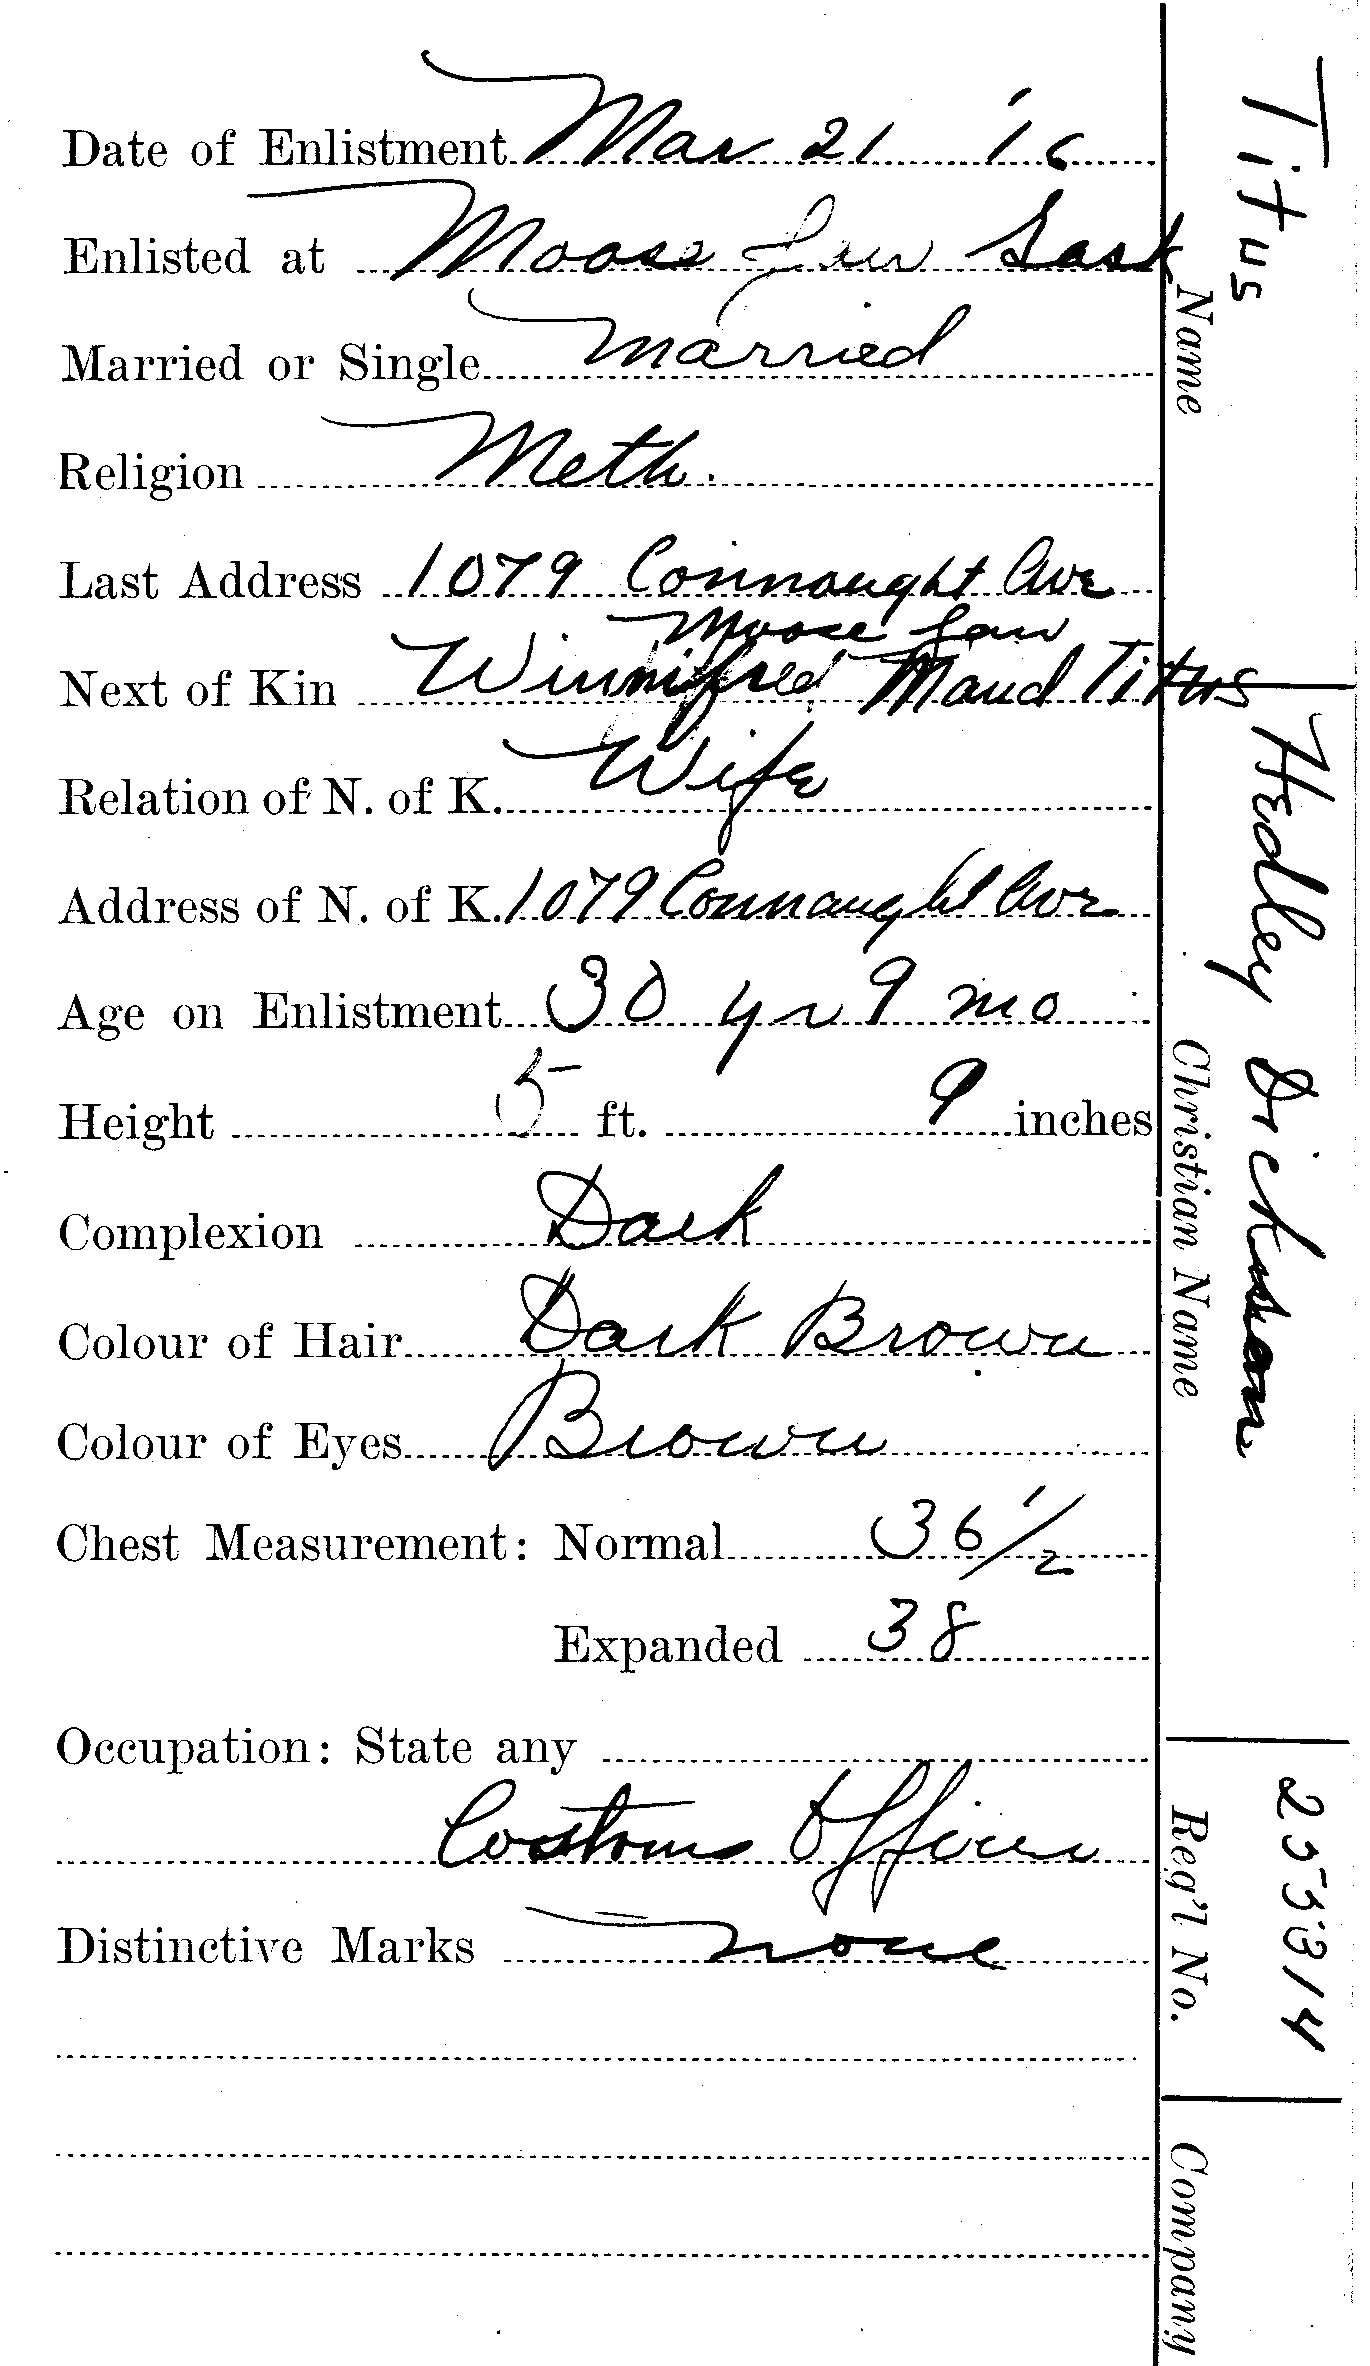 Date of Enlistment Mar 21 '16
Enlisted at Moose Jaw Sask
Married or Single Married
Religion Meth.
Last Address 1079 Connaught Ave
Moose Jaw
Next of Kin Winnifred Maud Titus
Relation of N. of K. Wife
Address of N. of K. 1079 Connaught Ave
Age on Enlistment 30 yr 9 mo
Height 5 ft. 9 inches
Complexion Dark
Colour of Hair Dark Brown
Colour of Eyes Brown
Chest Measurement: Normal 36 1/2
Expanded 38
Occupation: State any
Customs Officer
Distinctive Marks none
Titus
Name
Hedley Dickson
Christian Name
255314
Reg'l No.
Company